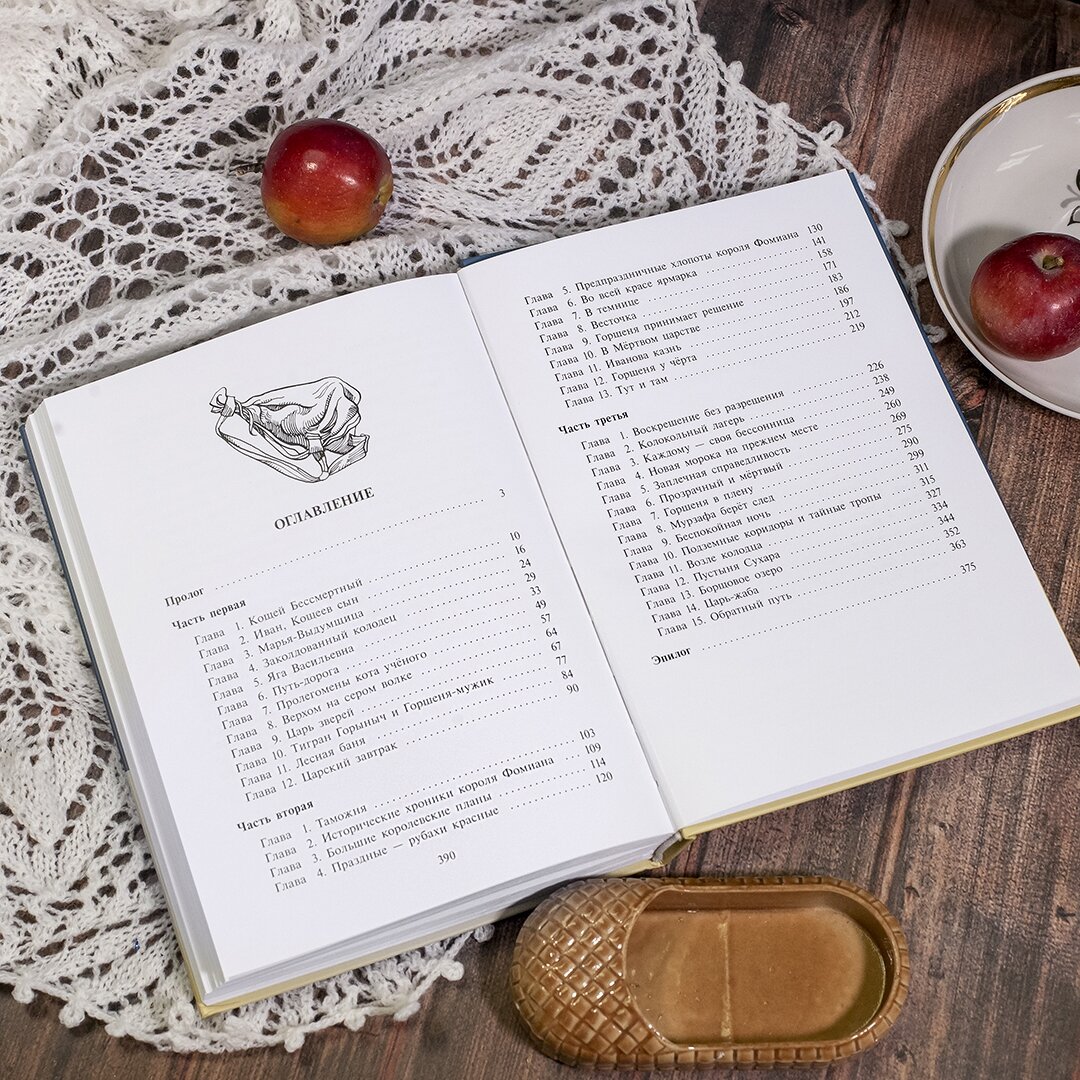 ОГЛАВЛЕНИЕ
Пролог . . . . . 3
Часть первая
Глава 1. Кощей Бессмертный . . . . . 10
Глава 2. Иван, Кощеев сын . . . . . 16
Глава 3. Марья-Выдумщица . . . . . 24
Глава 4. Заколдованный колодец . . . . . 29
Глава 5. Яга Васильевна . . . . . 33
Глава 6. Путь-дорога . . . . . 49
Глава 7. Пролегомены кота учёного . . . . . 57
Глава 8. Верхом на сером волке . . . . . 64
Глава 9. Царь зверей . . . . . 67
Глава 10. Тигран Горыныч и Горшеня-мужик . . . . . 77
Глава 11. Лесная баня . . . . . 84
Глава 12. Царский завтрак . . . . . 90
Часть вторая
Глава 1. Таможня . . . . . 103
Глава 2. Исторические хроники короля Фомиана . . . . . 109
Глава 3. Большие королевские планы . . . . . 114
Глава 4. Праздные — рубахи красные . . . . . 120
390
Глава 5. Предпраздничные хлопоты короля Фомиана 130
Глава 6. Во всей красе ярмарка . . . . . 141
Глава 7. В темнице . . . . . 158
Глава 8. Весточка . . . . . 171
Глава 9. Горшеня принимает решение . . . . . 183
Глава 10. В Мёртвом царстве . . . . . 186
Глава 11. Иванова казнь . . . . . 197
Глава 12. Горшеня у чёрта . . . . . 212
Глава 13. Тут и там . . . . . 219
Часть третья
Глава 1. Воскрешение без разрешения . . . . . 226
Глава 2. Колокольный лагерь . . . . . 238
Глава 3. Каждому — своя бессонница . . . . . 249
Глава 4. Новая морока на прежнем месте . . . . . 260
Глава 5. Заплечная справедливость . . . . . 269
Глава 6. Прозрачный и мёртвый . . . . . 275
Глава 7. Горшеня в плену . . . . . 290
Глава 8. Мурзафа берёт след . . . . . 299
Глава 9. Беспокойная ночь . . . . . 311
Глава 10. Подземные коридоры и тайные тропы . . . . . 315
Глава 11. Возле колодца . . . . . 327
Глава 12. Пустыня Сухара . . . . . 334
Глава 13. Борщовое озеро . . . . . 344
Глава 14. Царь-жаба . . . . . 352
Глава 15. Обратный путь . . . . . 363
Эпилог . . . . . 375